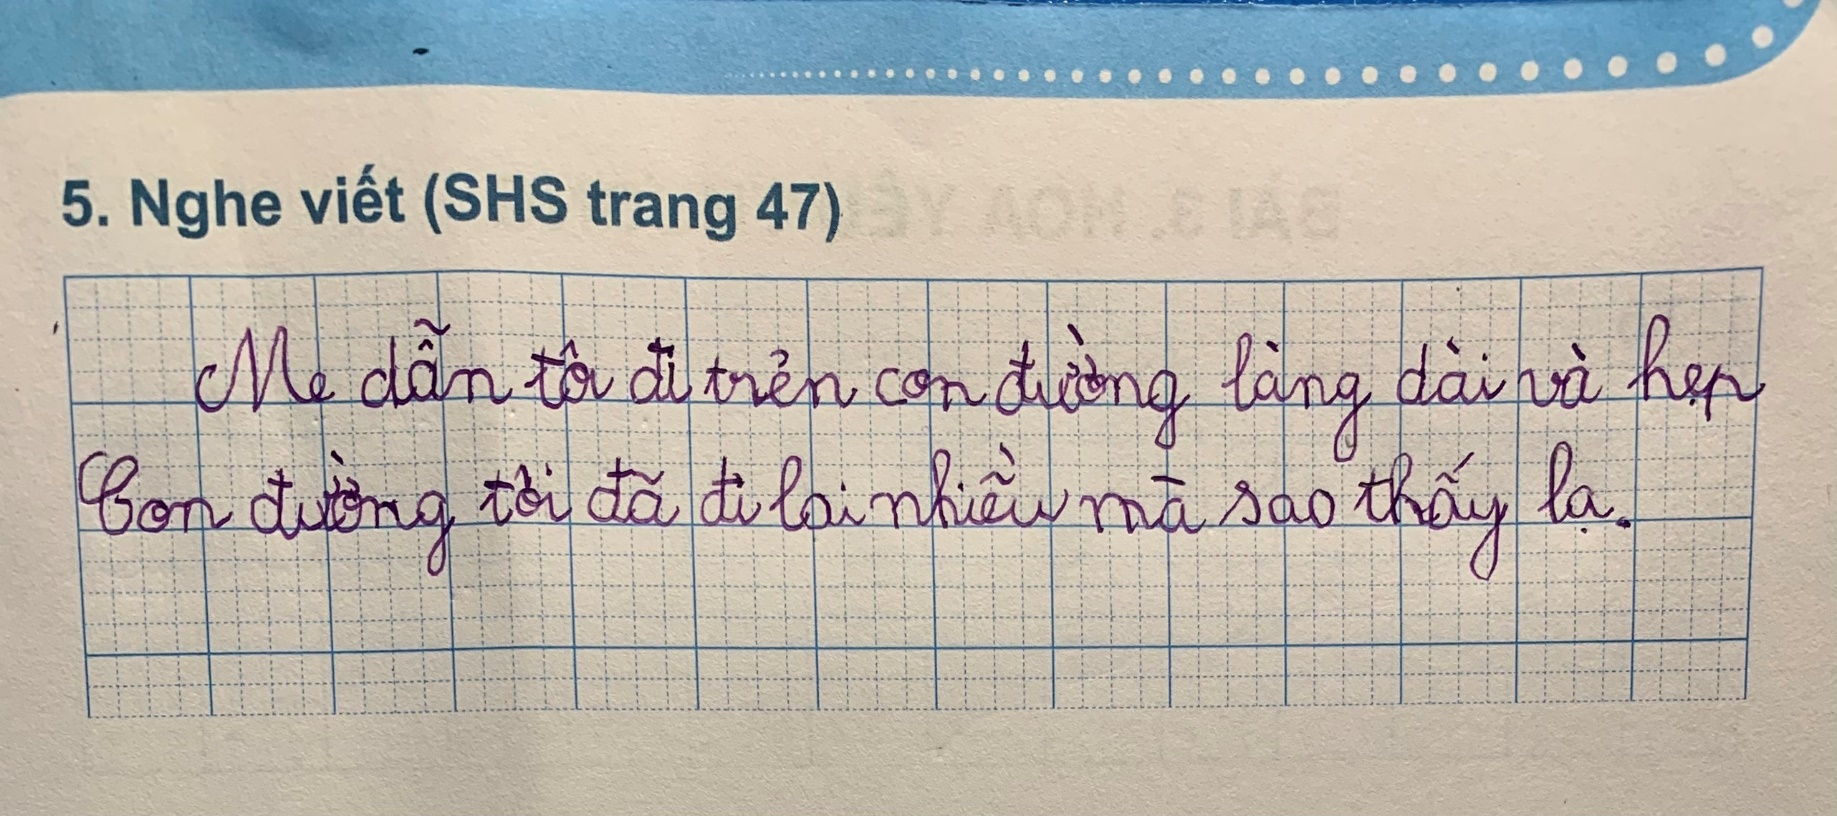 5. Nghe viết (SHS trang 47)
Mẹ dẫn tôi đi trên con đường làng dài và hẹp
Con đường tôi đã đi lại nhiều mà sao thấy lạ.